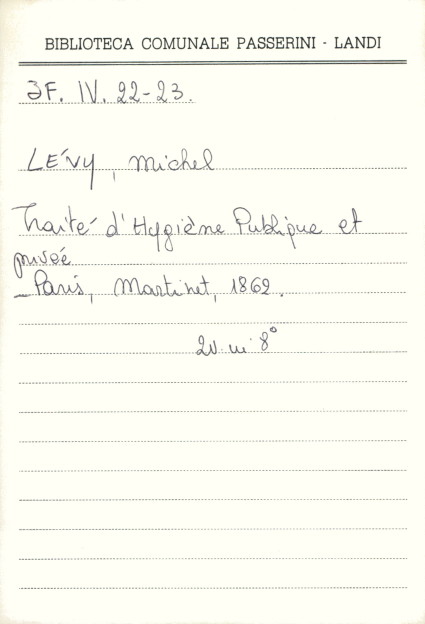 BIBLIOTECA COMUNALE PASSERINI - LANDI
3F. IV. 22-23.
LÉVY, Michel
Traité d'Hygiène Publique et
privée
- Paris, Martinet, 1862.
2v. in 8°